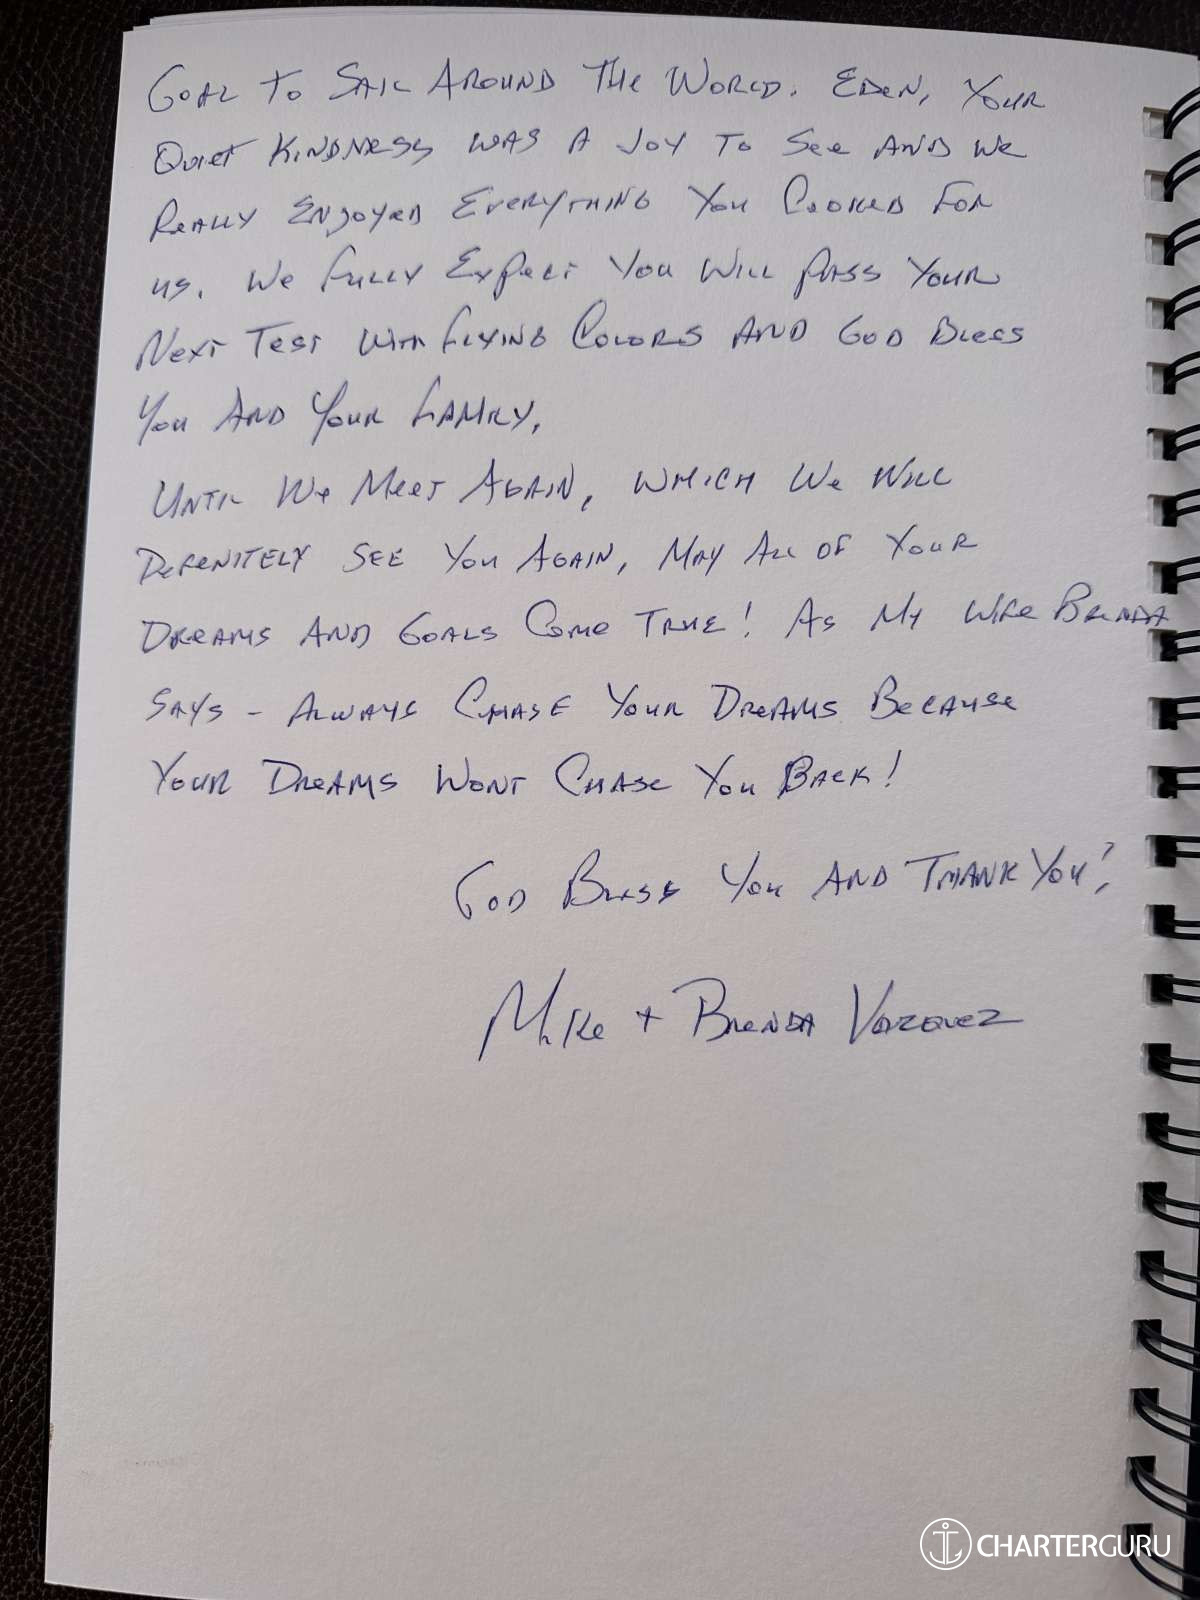 GOAL TO SAIL AROUND THE WORLD. EDEN, YOUR
QUIET KINDNESS WAS A JOY TO SEE AND WE
REALLY ENJOYED EVERYTHING YOU COOKED FOR
US. WE FULLY EXPECT YOU WILL PASS YOUR
NEXT TEST WITH FLYING COLORS AND GOD BLESS
YOU AND YOUR FAMILY.
UNTIL WE MEET AGAIN, WHICH WE WILL
DEFENITELY SEE YOU AGAIN, MAY ALL OF YOUR
DREAMS AND GOALS COME TRUE! AS MY WIFE BRENDA
SAYS - ALWAYS CHASE YOUR DREAMS BECAUSE
YOUR DREAMS WONT CHASE YOU BACK!
GOD BLESS YOU AND THANK YOU!
MIKE + BRENDA
CHARTERGURU